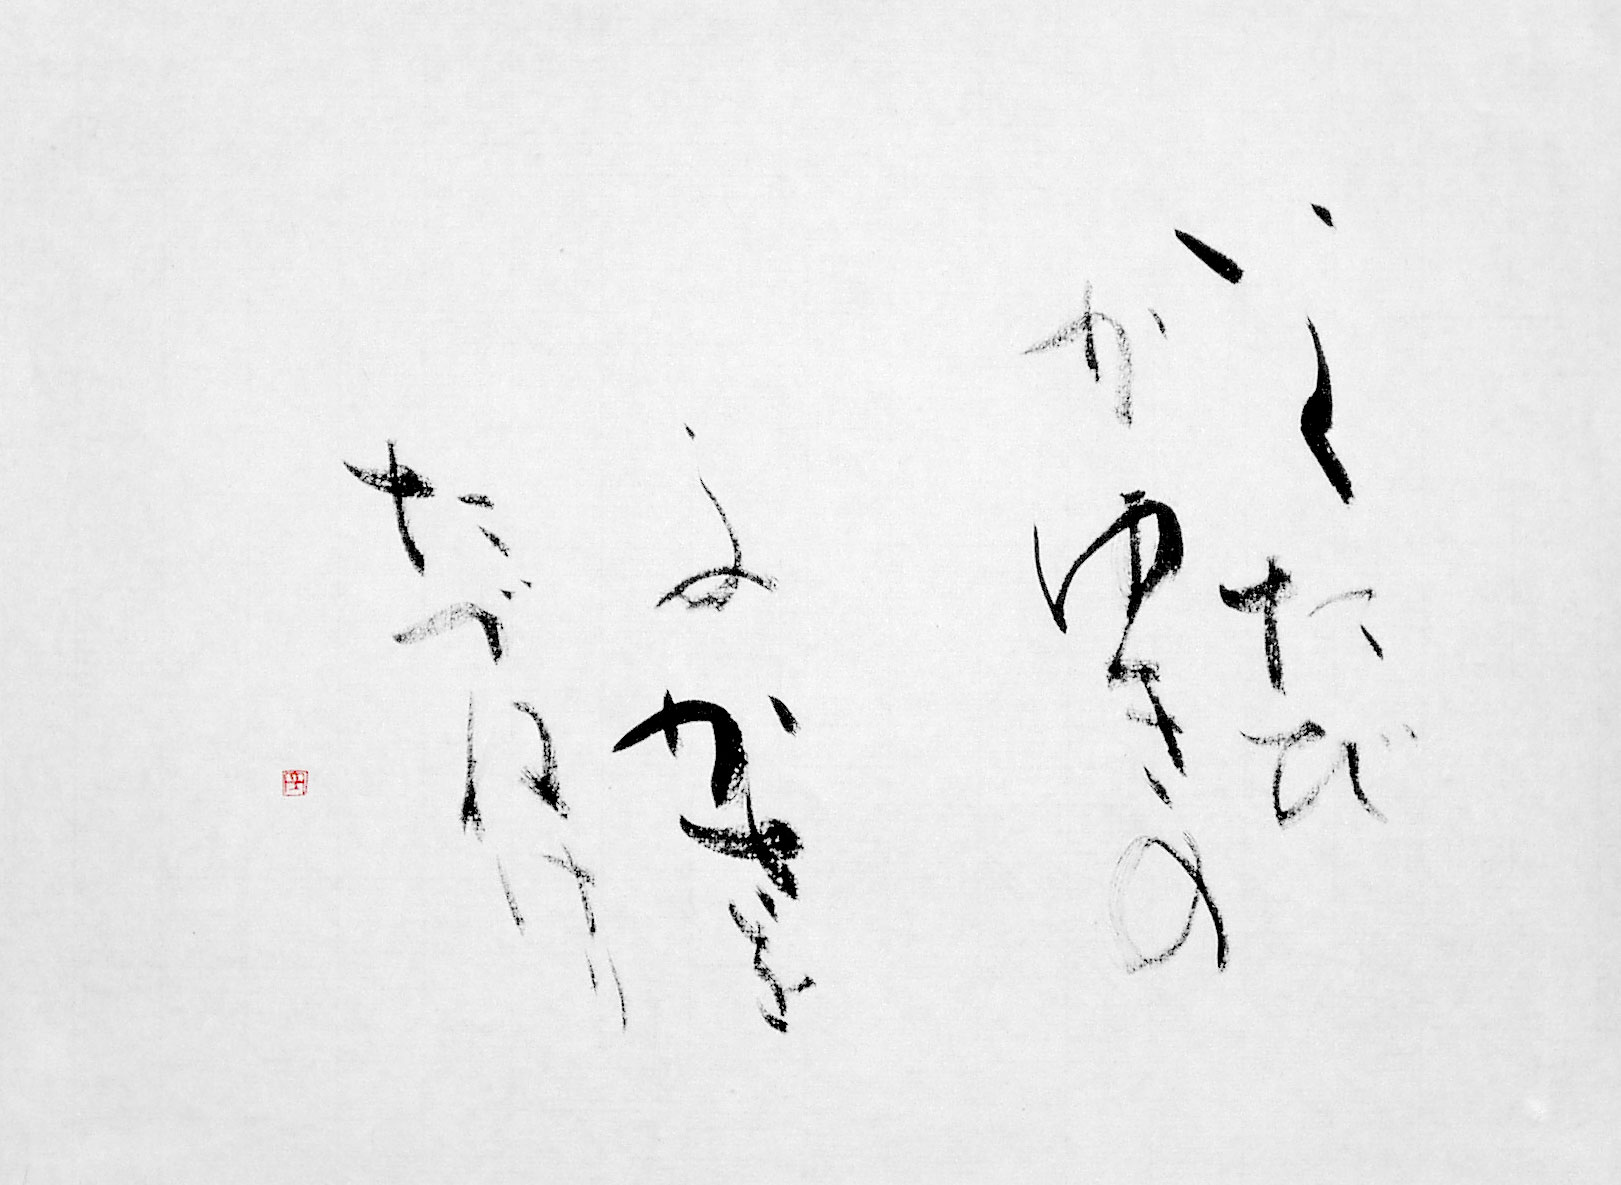 いくたび
かゆきの
ふかさを
たづねけり